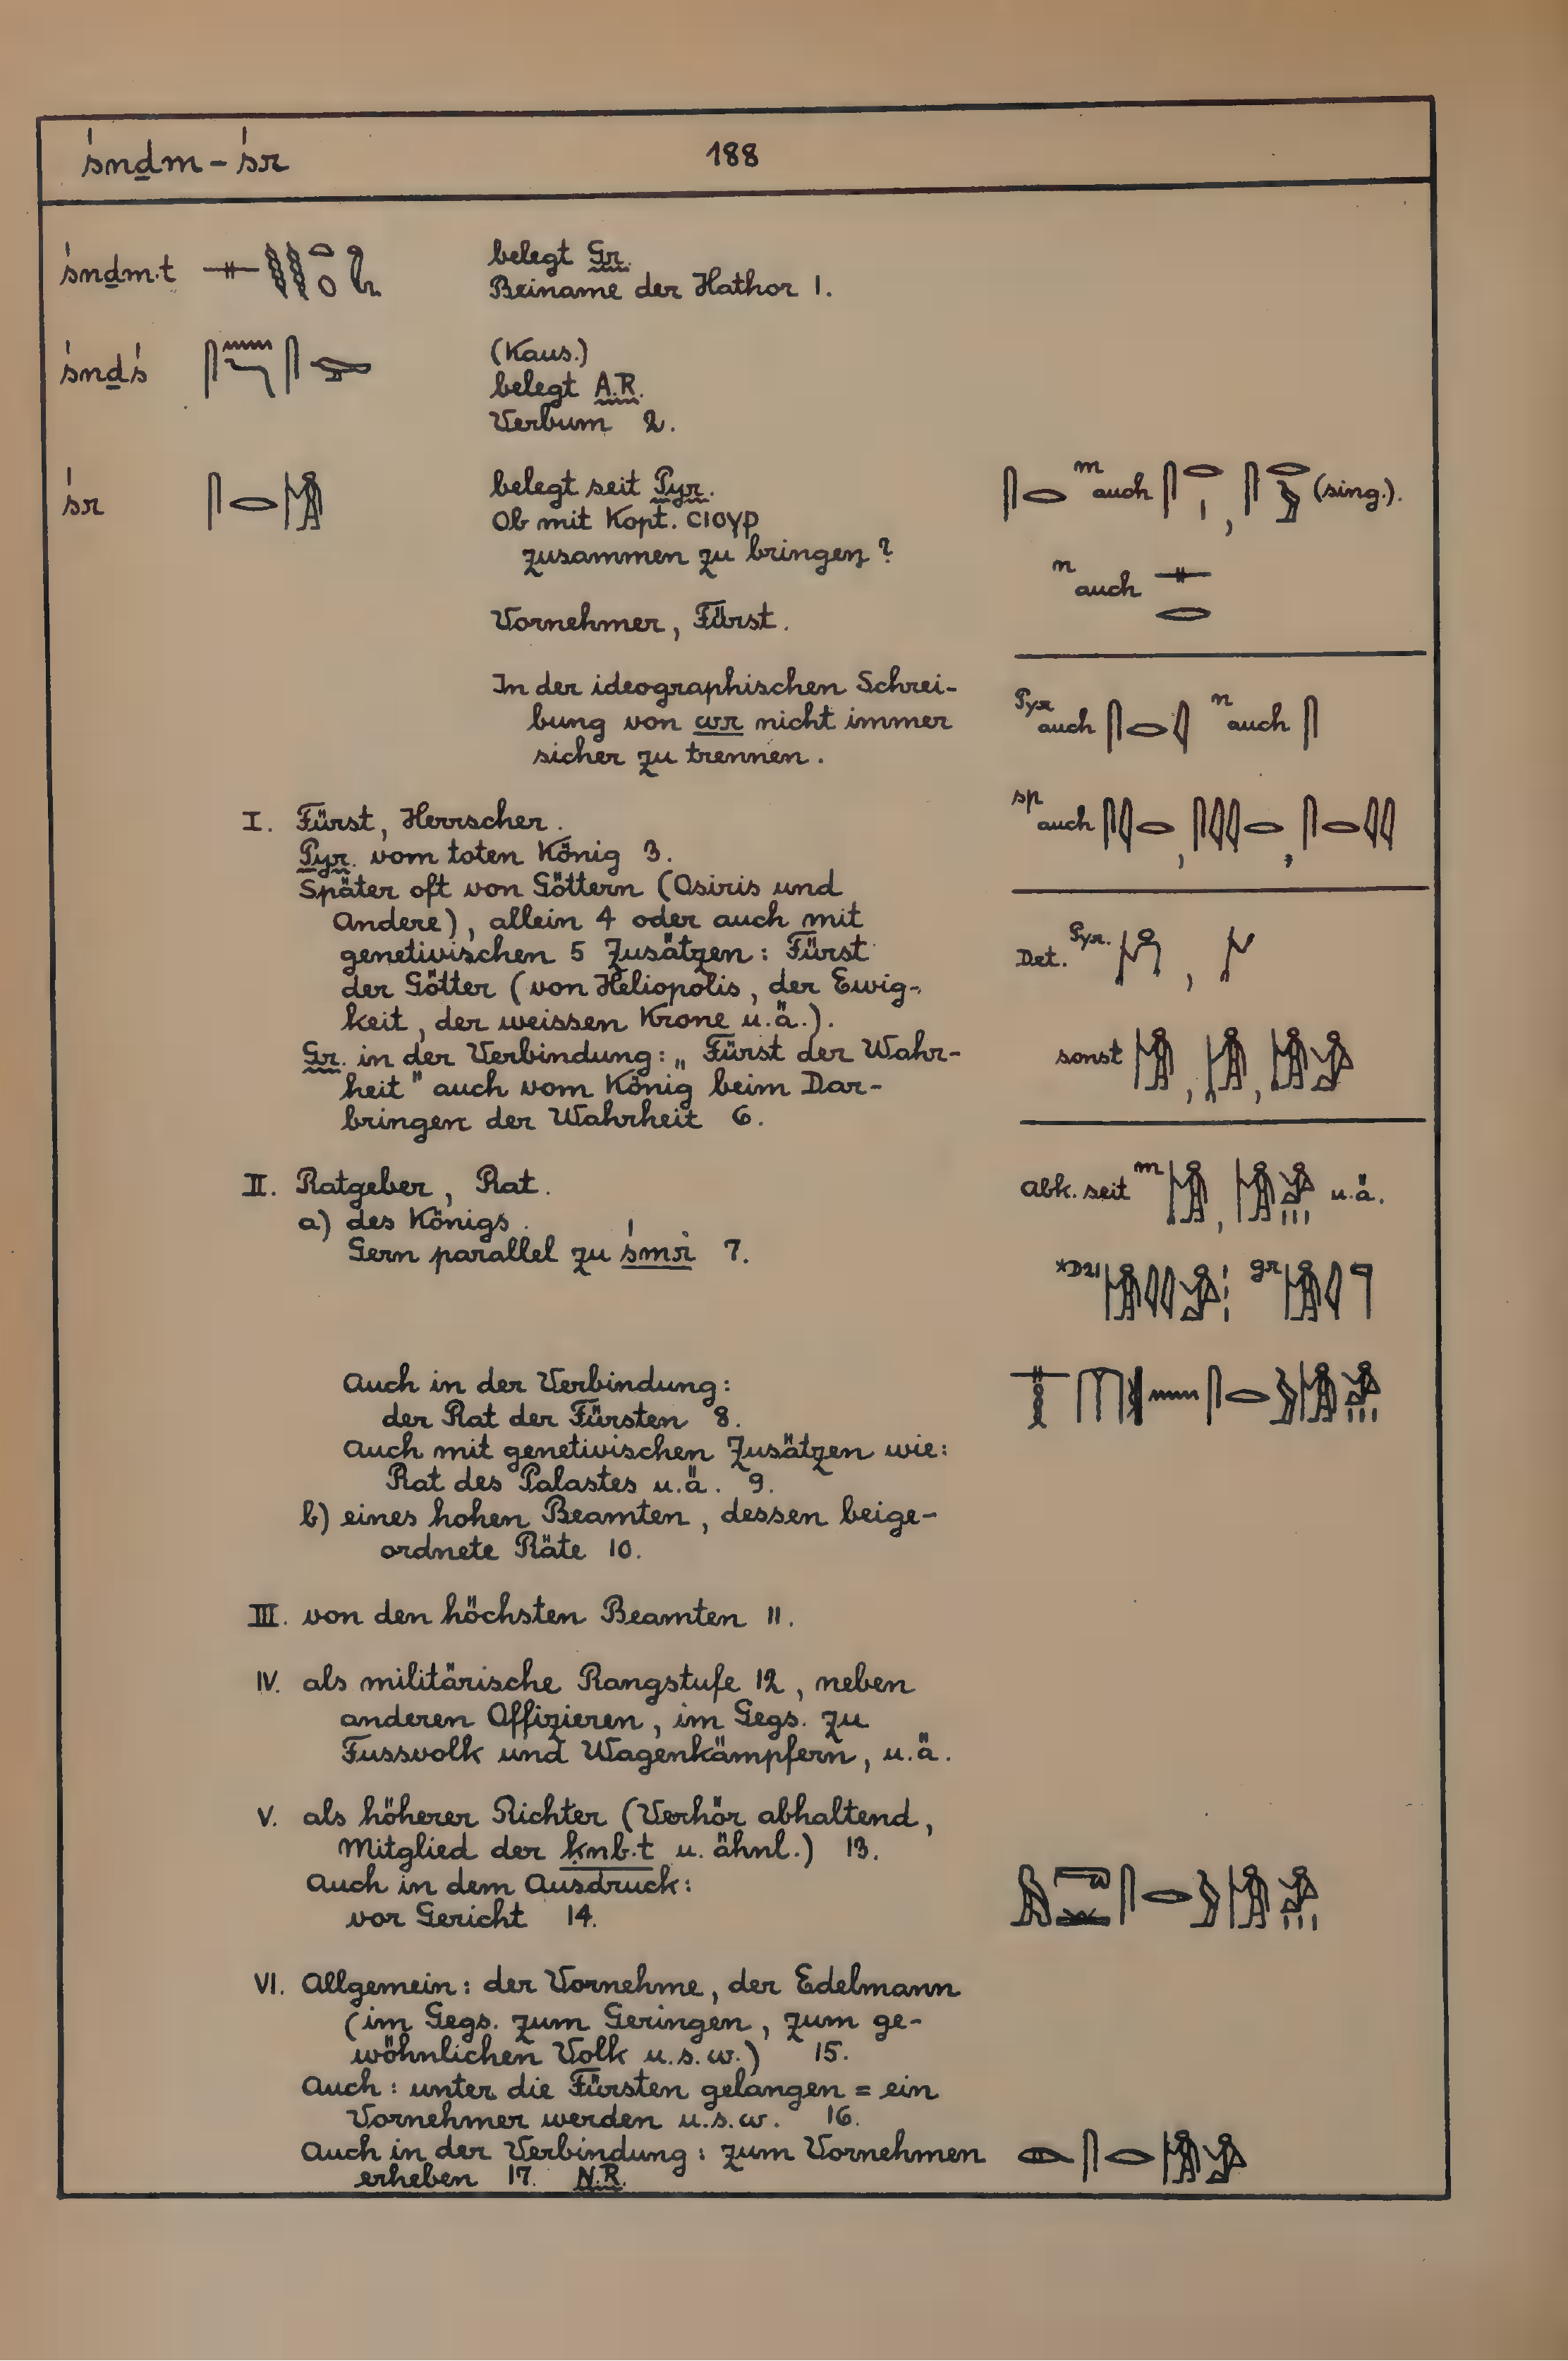 śnḏm - śr 188
śnḏm.t
belegt Gr.
Beiname der Hathor 1.
śnḏś
(Kaus.)
belegt A.R.
Verbum 2.
śr
belegt seit Pyr.
Ob mit Kopt. ⲥⲓⲟⲩⲣ
zusammen zu bringen?
Vornehmer, Fürst.
In der ideographischen Schrei-
bung von wr nicht immer
sicher zu trennen.
m auch , (sing.).
n auch
Pyr auch n auch
sp auch , ,
Det. Pyr. ,
sonst , ,
Abk. seit m , u.ä.
*D21 gr
I. Fürst, Herrscher.
Pyr. vom toten König 3.
Später oft von Göttern (Osiris und
Andere), allein 4 oder auch mit
genetivischen 5 Zusätzen: Fürst
der Götter (von Heliopolis, der Ewig-
keit, der weissen Krone u.ä.).
Gr. in der Verbindung: „Fürst der Wahr-
heit" auch vom König beim Dar-
bringen der Wahrheit 6.
II. Ratgeber, Rat.
a) des Königs.
Gern parallel zu śmr 7.
Auch in der Verbindung:
der Rat der Fürsten 8.
Auch mit genetivischen Zusätzen wie:
Rat des Palastes u.ä. 9.
b) eines hohen Beamten, dessen beige-
ordnete Räte 10.
III. von den höchsten Beamten 11.
IV. als militärische Rangstufe 12, neben
anderen Offizieren, im Gegs. zu
Fussvolk und Wagenkämpfern, u.ä.
V. als höherer Richter (Verhör abhaltend,
Mitglied der ḳnb.t u. ähnl.) 13.
Auch in dem Ausdruck:
vor Gericht 14.
VI. Allgemein: der Vornehme, der Edelmann
(im Gegs. zum Geringen, zum ge-
wöhnlichen Volk u.s.w.) 15.
Auch: unter die Fürsten gelangen = ein
Vornehmer werden u.s.w. 16.
Auch in der Verbindung: zum Vornehmen
erheben 17. N.R.